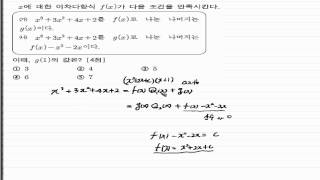 x에 대한 이차다항식 f(x)가 다음 조건을 만족시킨다.
(가) x³+3x²+4x+2를 f(x)로 나눈 나머지는
g(x)이다.
(나) x³+3x²+4x+2를 g(x)로 나눈 나머지는
f(x)-x²-2x이다.
이때, g(1)의 값은? [4점]
① 3 ② 4 ③ 5
④ 6 ⑤ 7
(x²+2x+c)(x+1) ax+b
x³+3x²+4x+2 = f(x) Q(x) + g(x)
= g(x) Q₂(x) + f(x)-x²-2x
f(x)-x²-2x = c
f(x) = x²+2x+c